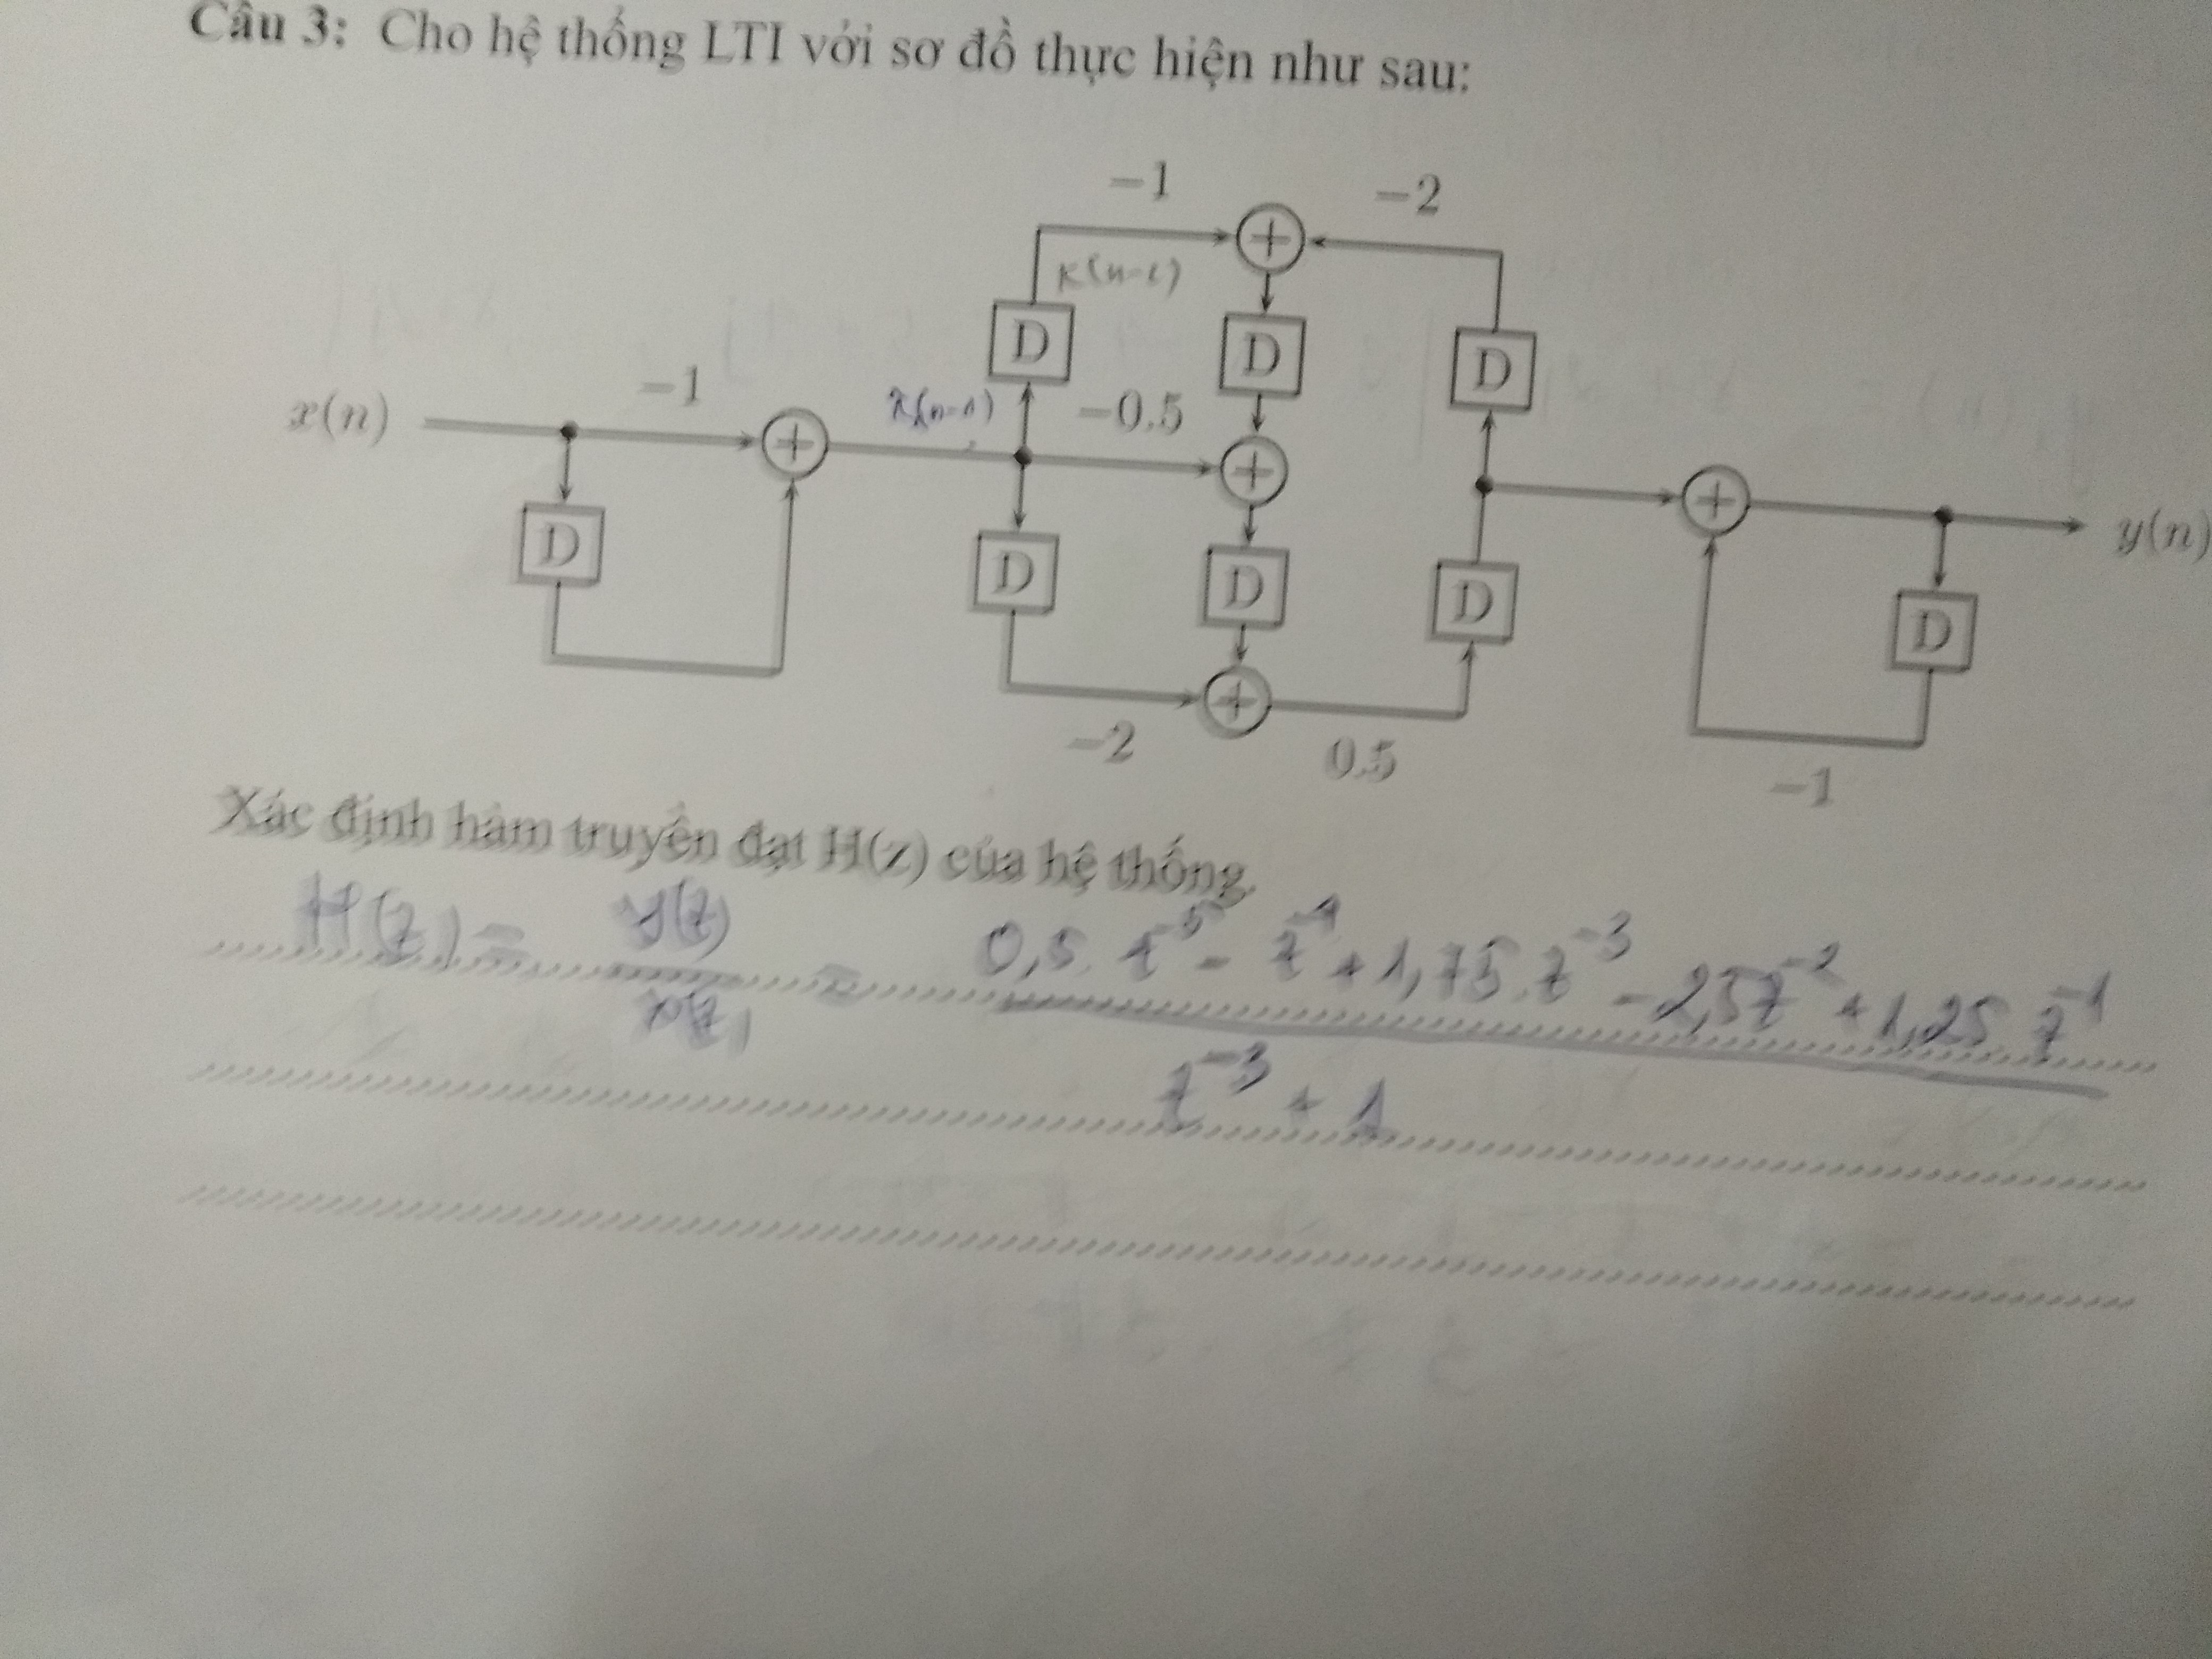 Câu 3: Cho hệ thống LTI với sơ đồ thực hiện như sau:
−1
−2
D
D
D
x(n)
−1
+
−0.5
+
+
+
y(n)
D
D
D
D
D
+
−2
0.5
−1
Xác định hàm truyền đạt H(z) của hệ thống.
H(z) = y(z) / x(z) = 0,5 z^-5 - z^-4 + 1,75 z^-3 - 2,5 z^-2 + 1,25 z^-1
z^-3 + 1